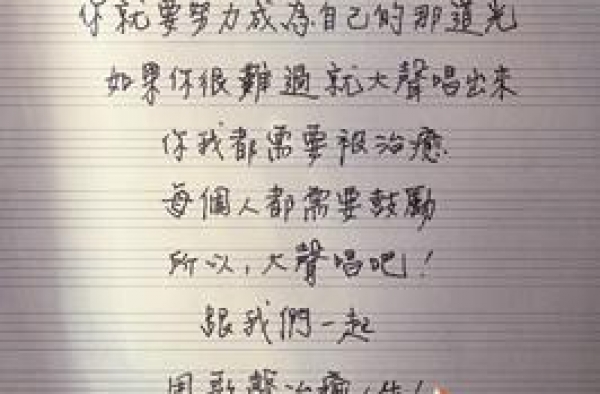 你就要努力成為自己的那道光
如果你很難過就大聲唱出來
你我都需要被治癒
每個人都需要鼓勵
所以，大聲唱吧！
跟我們一起
用歌聲治癒